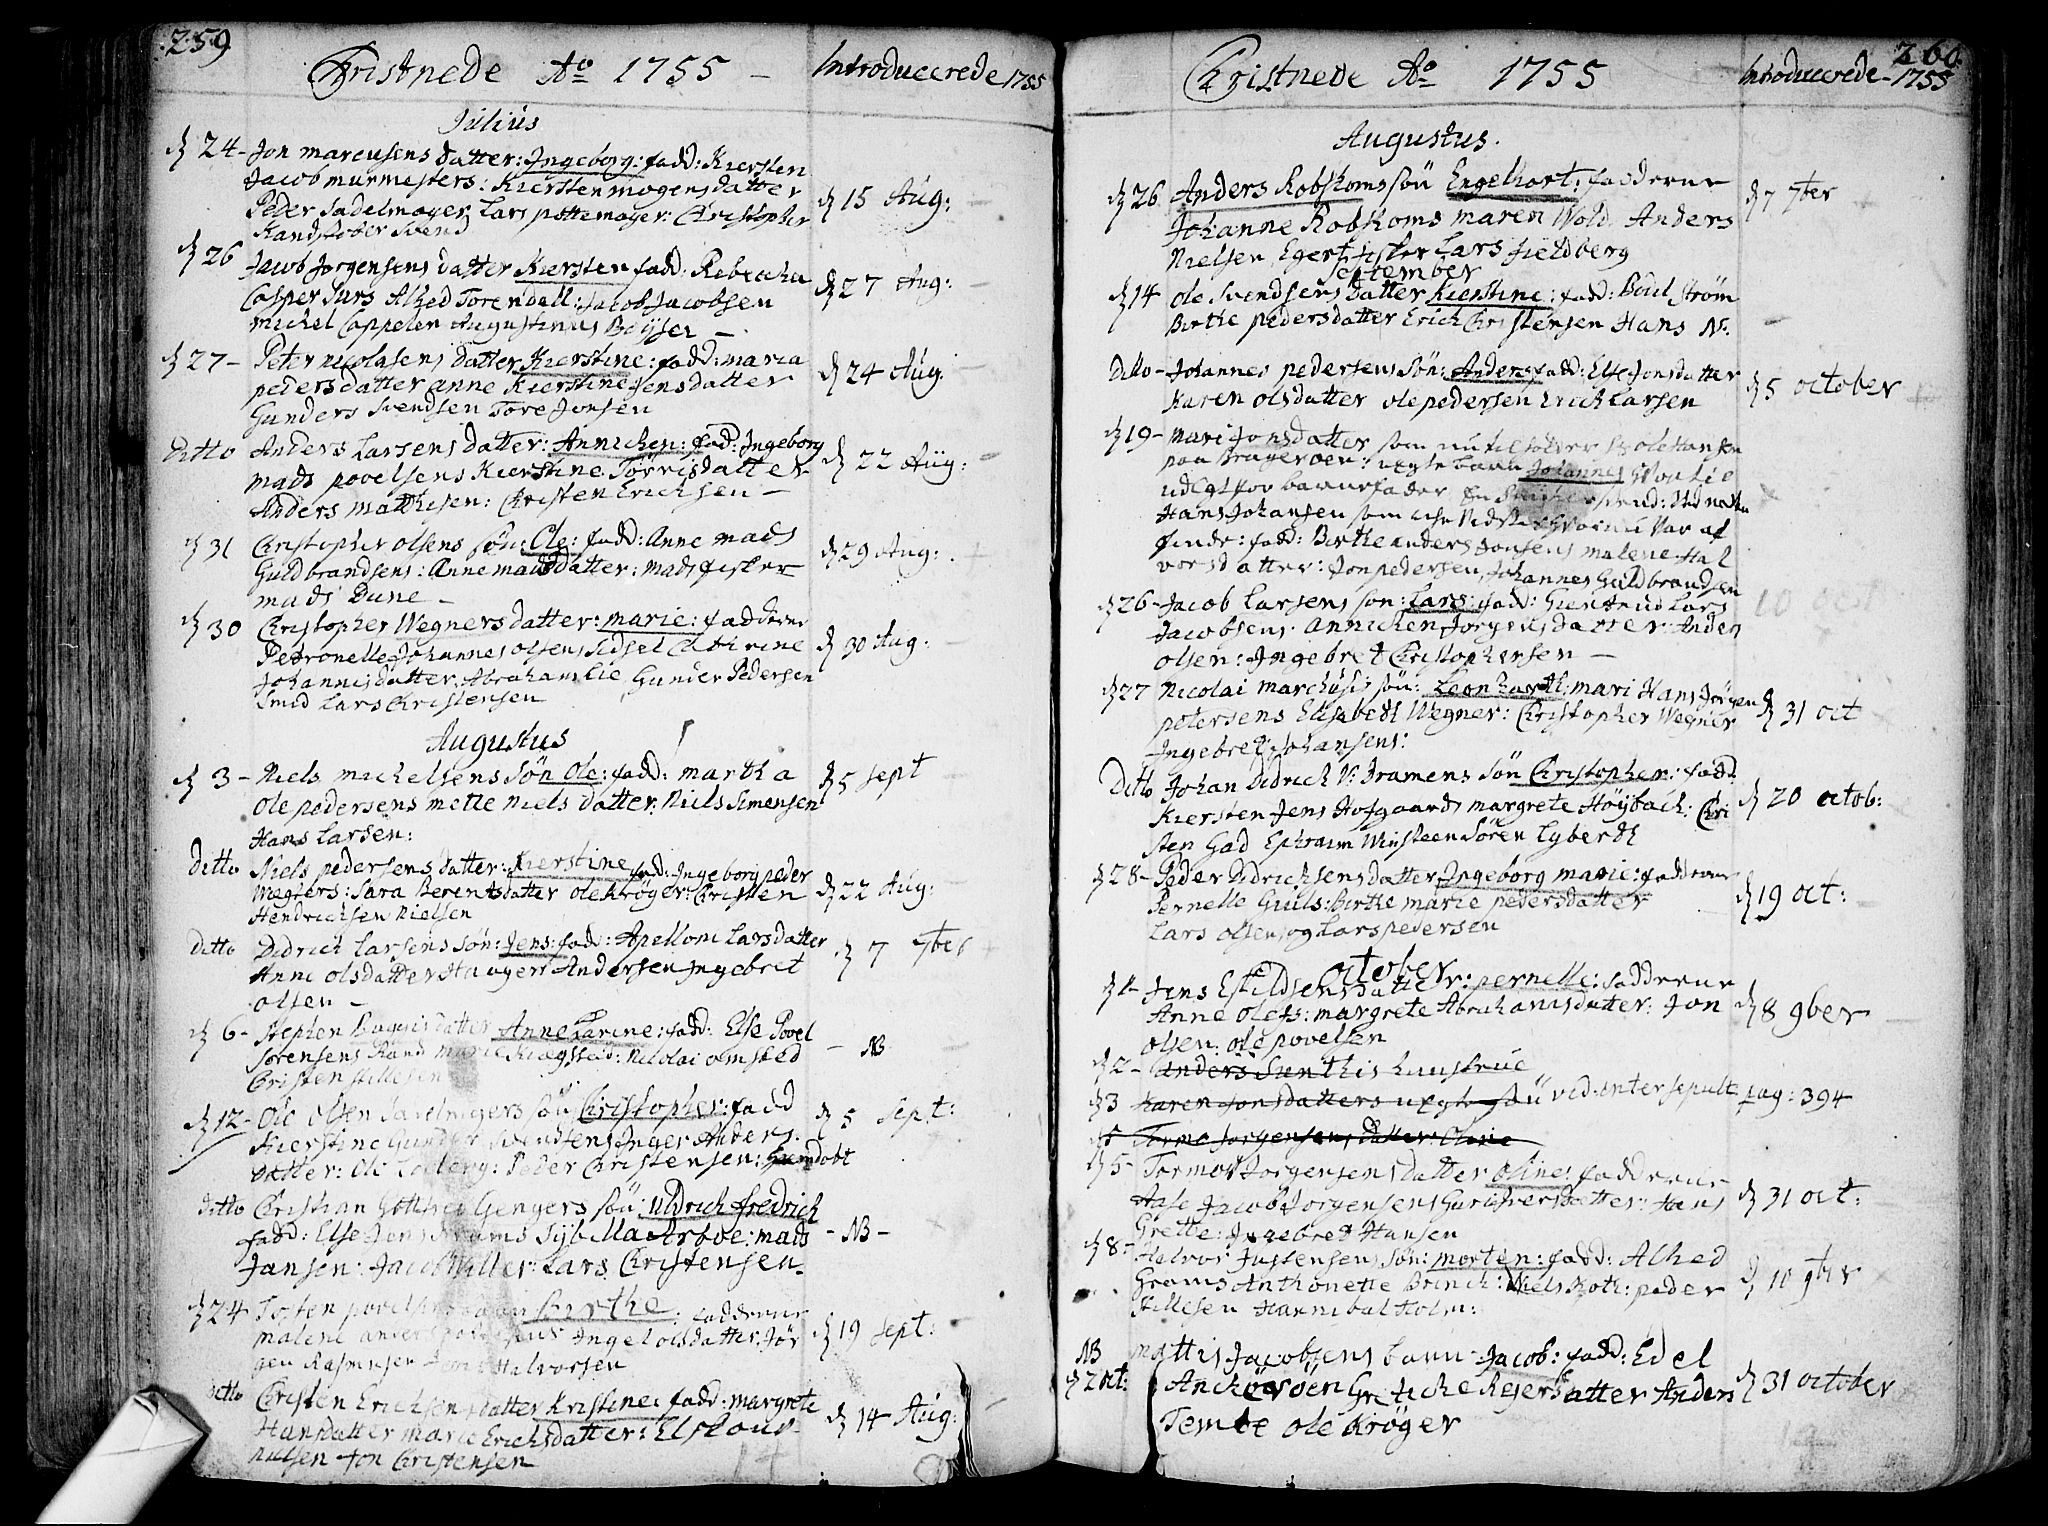 259
Christnede Ao 1755 — Introducerede 1755
Julius
d 24 - Jon marcusens datter: Ingeborg: fadd: Kiersten
Jacob murmesters: Kiersten mogensdatter
Peder Sadelmager Lars pottemager: Christopher
Kandstøber Svend
d 15 Aug:
d 26 Jacob Jorgensens datter Kiersten fadd: Rebeccha
Casper Surs Alhed Torendall: Jacob Jacobsen
michel Cappelen Augustinus Beyser —
d 27 Aug:
d 27 - Peter nicolasens datter Kierstine: fadd: maria
pedersdatter anne Kierstine Jensdatter
Gunders Svendsen Tore Jonsen
d 24 Aug.
Ditto Anders Larsens datter: Annichen: fad: Ingeborg
mads povelsens Kierstine Torrisdatter
Anders matthisen: Christen Erichsen —
d 22 Aug:
d 31 Christopher olsens søn: Ole: fadd: Anne mads
Guldbrandsens: Anne madsdatter: mads fisker
mads Dune —
d 29 Aug:
d 30 Christopher Wegners datter: marie: fadderne
Petronelle Johannes olsens Sidsel Cathrine
Johannisdatter. Abraham Lie Gunder Pedersen
Smed Lars Christensen
d 30 Aug:
Augustus
d 3 - Niels michelsens søn Ole: fadd: martha
Ole pedersens mette Nielsdatter: Niels Simensen
Hans Larsen:
d 5 Sept
Ditto Niels pedersens datter: Kierstine fad: Ingeborg peder
Wegters: Sara Berentsdatter ole Krøger: Christen
Hendrichsen Nielsen
d 22 Aug:
Ditto Didrich Larsens søn: Jens: fad: Apelloni Larsdatter
Anne olsdatter Haagen Andersen Ingebret
olsen —
d 7 7ber
d 6 - Stephen datter Anne Karine: fadd: Else Povel
Sorensens Rand marie Kragstad: Nicolai omsted
Christen Stillesen
NB
d 12 - Ole olsen Sadelmagers søn Christopher: fadd
Kierstine Gunder Svendsens Inger Anders
datter: Ole Lodberg: Peder Christensen: hiemdøbt
d 5 Sept:
ditto Christian Gottfred Gengers søn: Uldrich fredrich
fadd: Else Jens Krams Sybilla Arboe: mads
Jansen: Jacob Lars Christensen
- NB -
d 24 Tosten povelsens Birthe: fadderne
malene anders Ingeb olsdatter: Jør
gen Rasmusen Halvorsen
d 19 Sept:
ditto Christen Erichsens datter Kirstine: fadd: margrete
Hansdatter marie Erichsdatter: El
nielsen Jon Christensen
d 14 Aug:
260
Christnede Ao 1755 Introducerede - 1755
Augustus.
d 26 Anders Robskoms søn Engelhart: fadderne
Johanne Robskoms maren Wold Anders
Nielsen Egert fisker Lars fieldberg
d 7 7ber
September
d 14 Ole Svendsens datter Kierstine: fadd: Boel Strøm
Birthe pedersdatter Erich Christensen Hans N:
Ditto - Johannes pedersens søn: Anders fadd: Else Jonsdatter
Karen olsdatter ole pedersen Erich Larsen
d 5 october
d 19 - Mari Jonsdatter som
paa Bragerøen: uegte barn Johannes
udlagt for barnefader
Hans Johansen som var af
fadd: Birthe anders Jonsens malene Hal
vorsdatter: Jon pedersen, Johannes Guldbrandsen
d 26 - Jacob Larsens søn: Lars: fadd: Giertrud Lars
Jacobsens. Annichen Jorgensdatter: Anders
olsen: Ingebret Christophersen —
d 27 Nicolai marchusis søn: Leonhardt: mari Hans Jørgen
petersens Elisabeth Wegner: Christopher Wegner
Ingebret Johansens:
d 31 oct
Ditto Johan Didrich V: Framens søn Christopher: fadd:
Kiersten Jens Hofgaards margrete Høybach: Chri
sten Gad Ephraim Winsteen Søren Lyberth
d 20 octob:
d 28 - Peder Didrichsens datter Ingeborg marie: fadderne
Pernelle Guuls: Birthe marie pedersdatter
Lars olsen og Lars pedersen
d 19 oct:
october
d 1 - Jens Eskildsens datter: pernelle: fadderne
Anne Olefs: margrete Abrahamsdatter: Jon
olsen: ole povelsen
d 8 9ber
d 2 - anders Sunthis hustrue
d 3 Karen Jonsdatters uegte søn vid: inter sepult pag: 394
d 5 Tormo Jorgensens datter: Olsine
d 5 - Tormo Jorgensens datter olsine: fadderne
Aase Jacob Jorgensens Guri Iversdatter: Hans
Grette: Ingebret Hansen
d 31 oct:
d 8 - Halvor Justensens søn: morten: fadd: Alhed
Grams Anthonette Brinch: Niels Roth: peder
Stillesen Hannibal Holm:
d 10 9ber
NB mattis Jacobsens barn Jacob: fadd: Edel
d 2 oct: Anchersøen Grethe Reiersdatter Anders
Temte ole Krøger
d 31 october